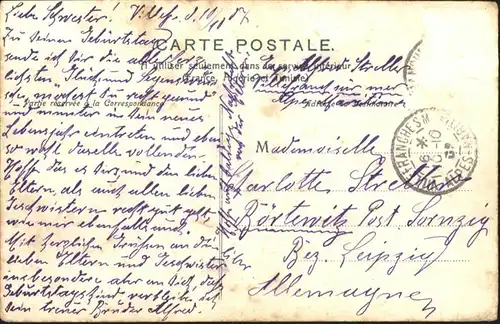 Liebe Schwester! Villefr. d. 10/11 07
Zu Deinem Geburtstag
sende ich Dir die aller herz-
lichsten Glück und Segenswünsche
und munter in Dein neues
Lebensjahr eintreten und eben
so wohl dasselbe vollenden.
Hoffe das es Dir und den lieben
Eltern, als auch allen lieben
Geschwistern recht gut geht
wie mir ebenfalls
Mit herzlichen Grüssen an die
lieben Eltern und Geschwister
insbesondere aber an Dich, das
Geburtstagskind verbleibe ich
Dein treuer Bruder Alfred.
CARTE POSTALE.
A utiliser seulement dans le service intérieur
(France, Algérie et Tunisie)
Partie réservée à la Correspondance
Adresse du Destinataire
Strelle
Villefranche sur mer
Alpes maritimes
Mademoiselle
Charlotte
Börtewitz Post Sornzig
Bez. Leipzig
Allemagne
VILLEFRANCHE S MER
ALPES MARITIMES